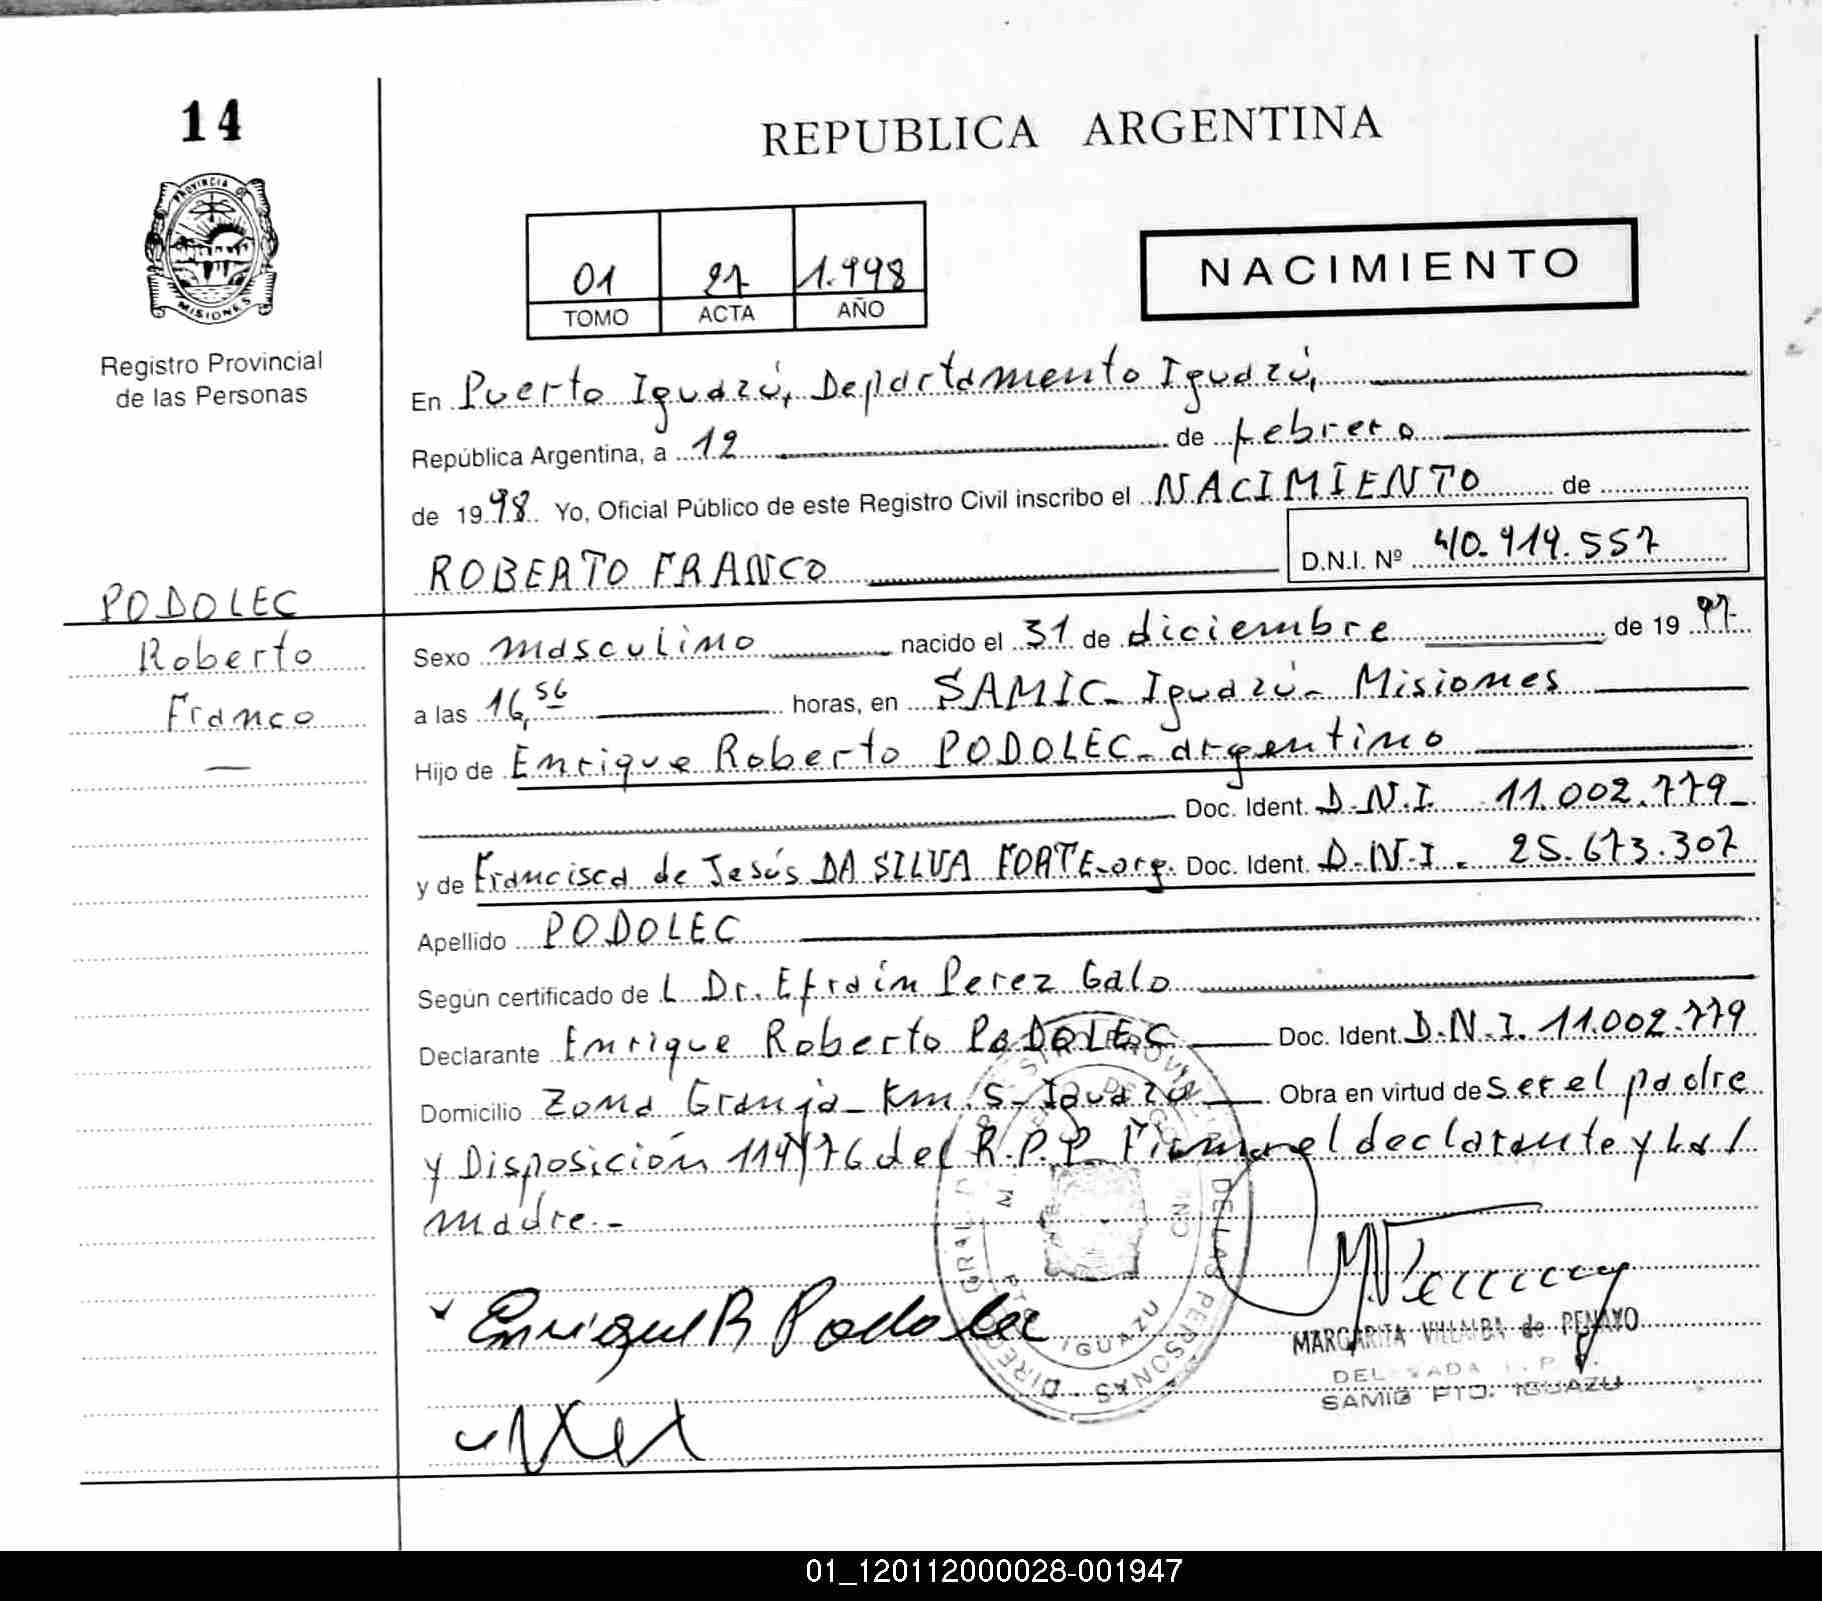 14
REPUBLICA ARGENTINA
PROVINCIA DE
MISIONES
Registro Provincial
de las Personas
01 27 1.998
TOMO ACTA AÑO
NACIMIENTO
En Puerto Iguazú, Departamento Iguazú,
República Argentina, a 12 de febrero
de 1998 Yo, Oficial Público de este Registro Civil inscribo el NACIMIENTO de
ROBERTO FRANCO D.N.I. Nº 40.919.557
PODOLEC
Roberto
Franco
Sexo masculino nacido el 31 de diciembre de 1997
a las 16,56 horas, en SAMIC- Iguazú- Misiones
Hijo de Enrique Roberto PODOLEC- argentino
Doc. Ident. D.N.I. 11.002.779-
y de Francisca de Jesús DA SILVA FORTE-arg. Doc. Ident. D.N.I. 25.673.307
Apellido PODOLEC
Según certificado de L Dr. Efraín Perez Galo
Declarante Enrique Roberto PODOLEC Doc. Ident. D.N.I. 11.002.779
Domicilio Zona Granja- Km.5- Iguazú Obra en virtud de ser el padre
y Disposición 114/76 del R.P.P. Firman el declarante y la
madre.-
Enrique R Podolec
IGUAZU
MARGARITA VILLALBA de PENAYO
SAMIC PTO. IGUAZU
01_120112000028-001947